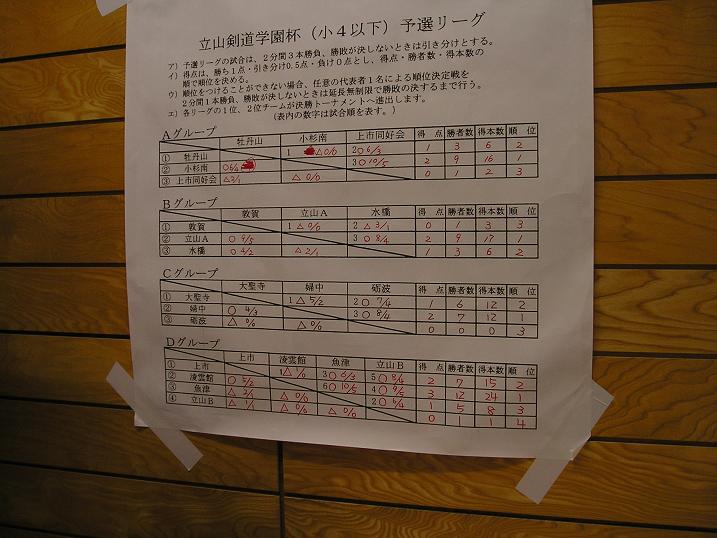 立山剣道学園杯（小４以下）予選リーグ
ア）予選リーグの試合は、２分間３本勝負、勝敗が決しないときは引き分けとする。
イ）得点は、勝ち１点・引き分け0.5点・負け０点とし、得点・勝者数・得本数の
順で順位を決める。
ウ）順位をつけることができない場合、任意の代表者１名による順位決定戦を
２分間１本勝負、勝敗が決しないときは延長無制限で勝敗の決するまで行う。
エ）各リーグの１位、２位チームが決勝トーナメントへ進出します。
（表内の数字は試合順を表す。）
Aグループ
牡丹山 小杉南 上市同好会 得 点 勝者数 得本数 順 位
① 牡丹山 1 △0/0 2○6/3 1 3 6 2
② 小杉南 ○6/4 3○10/5 2 9 16 1
③ 上市同好会 △2/1 △0/0 0 1 2 3
Bグループ
敦賀 立山A 水橋 得 点 勝者数 得本数 順 位
① 敦賀 1 △0/0 2 △3/1 0 1 3 3
② 立山A ○9/5 3○8/4 2 9 17 1
③ 水橋 ○4/2 △2/1 1 3 6 2
Cグループ
大聖寺 婦中 砺波 得 点 勝者数 得本数 順 位
① 大聖寺 1△5/2 2○7/4 1 6 12 2
② 婦中 ○4/3 3○8/4 2 7 12 1
③ 砺波 △0/0 △0/0 0 0 0 3
Dグループ
上市 凌雲館 魚津 立山B 得 点 勝者数 得本数 順 位
① 上市 1△1/0 3○6/3 5○8/4 2 7 15 2
② 凌雲館 ○5/2 6○10/5 4○9/5 3 12 24 1
③ 魚津 △2/1 △0/0 2○6/4 1 5 8 3
④ 立山B △1/1 △0/0 △0/0 0 1 1 4